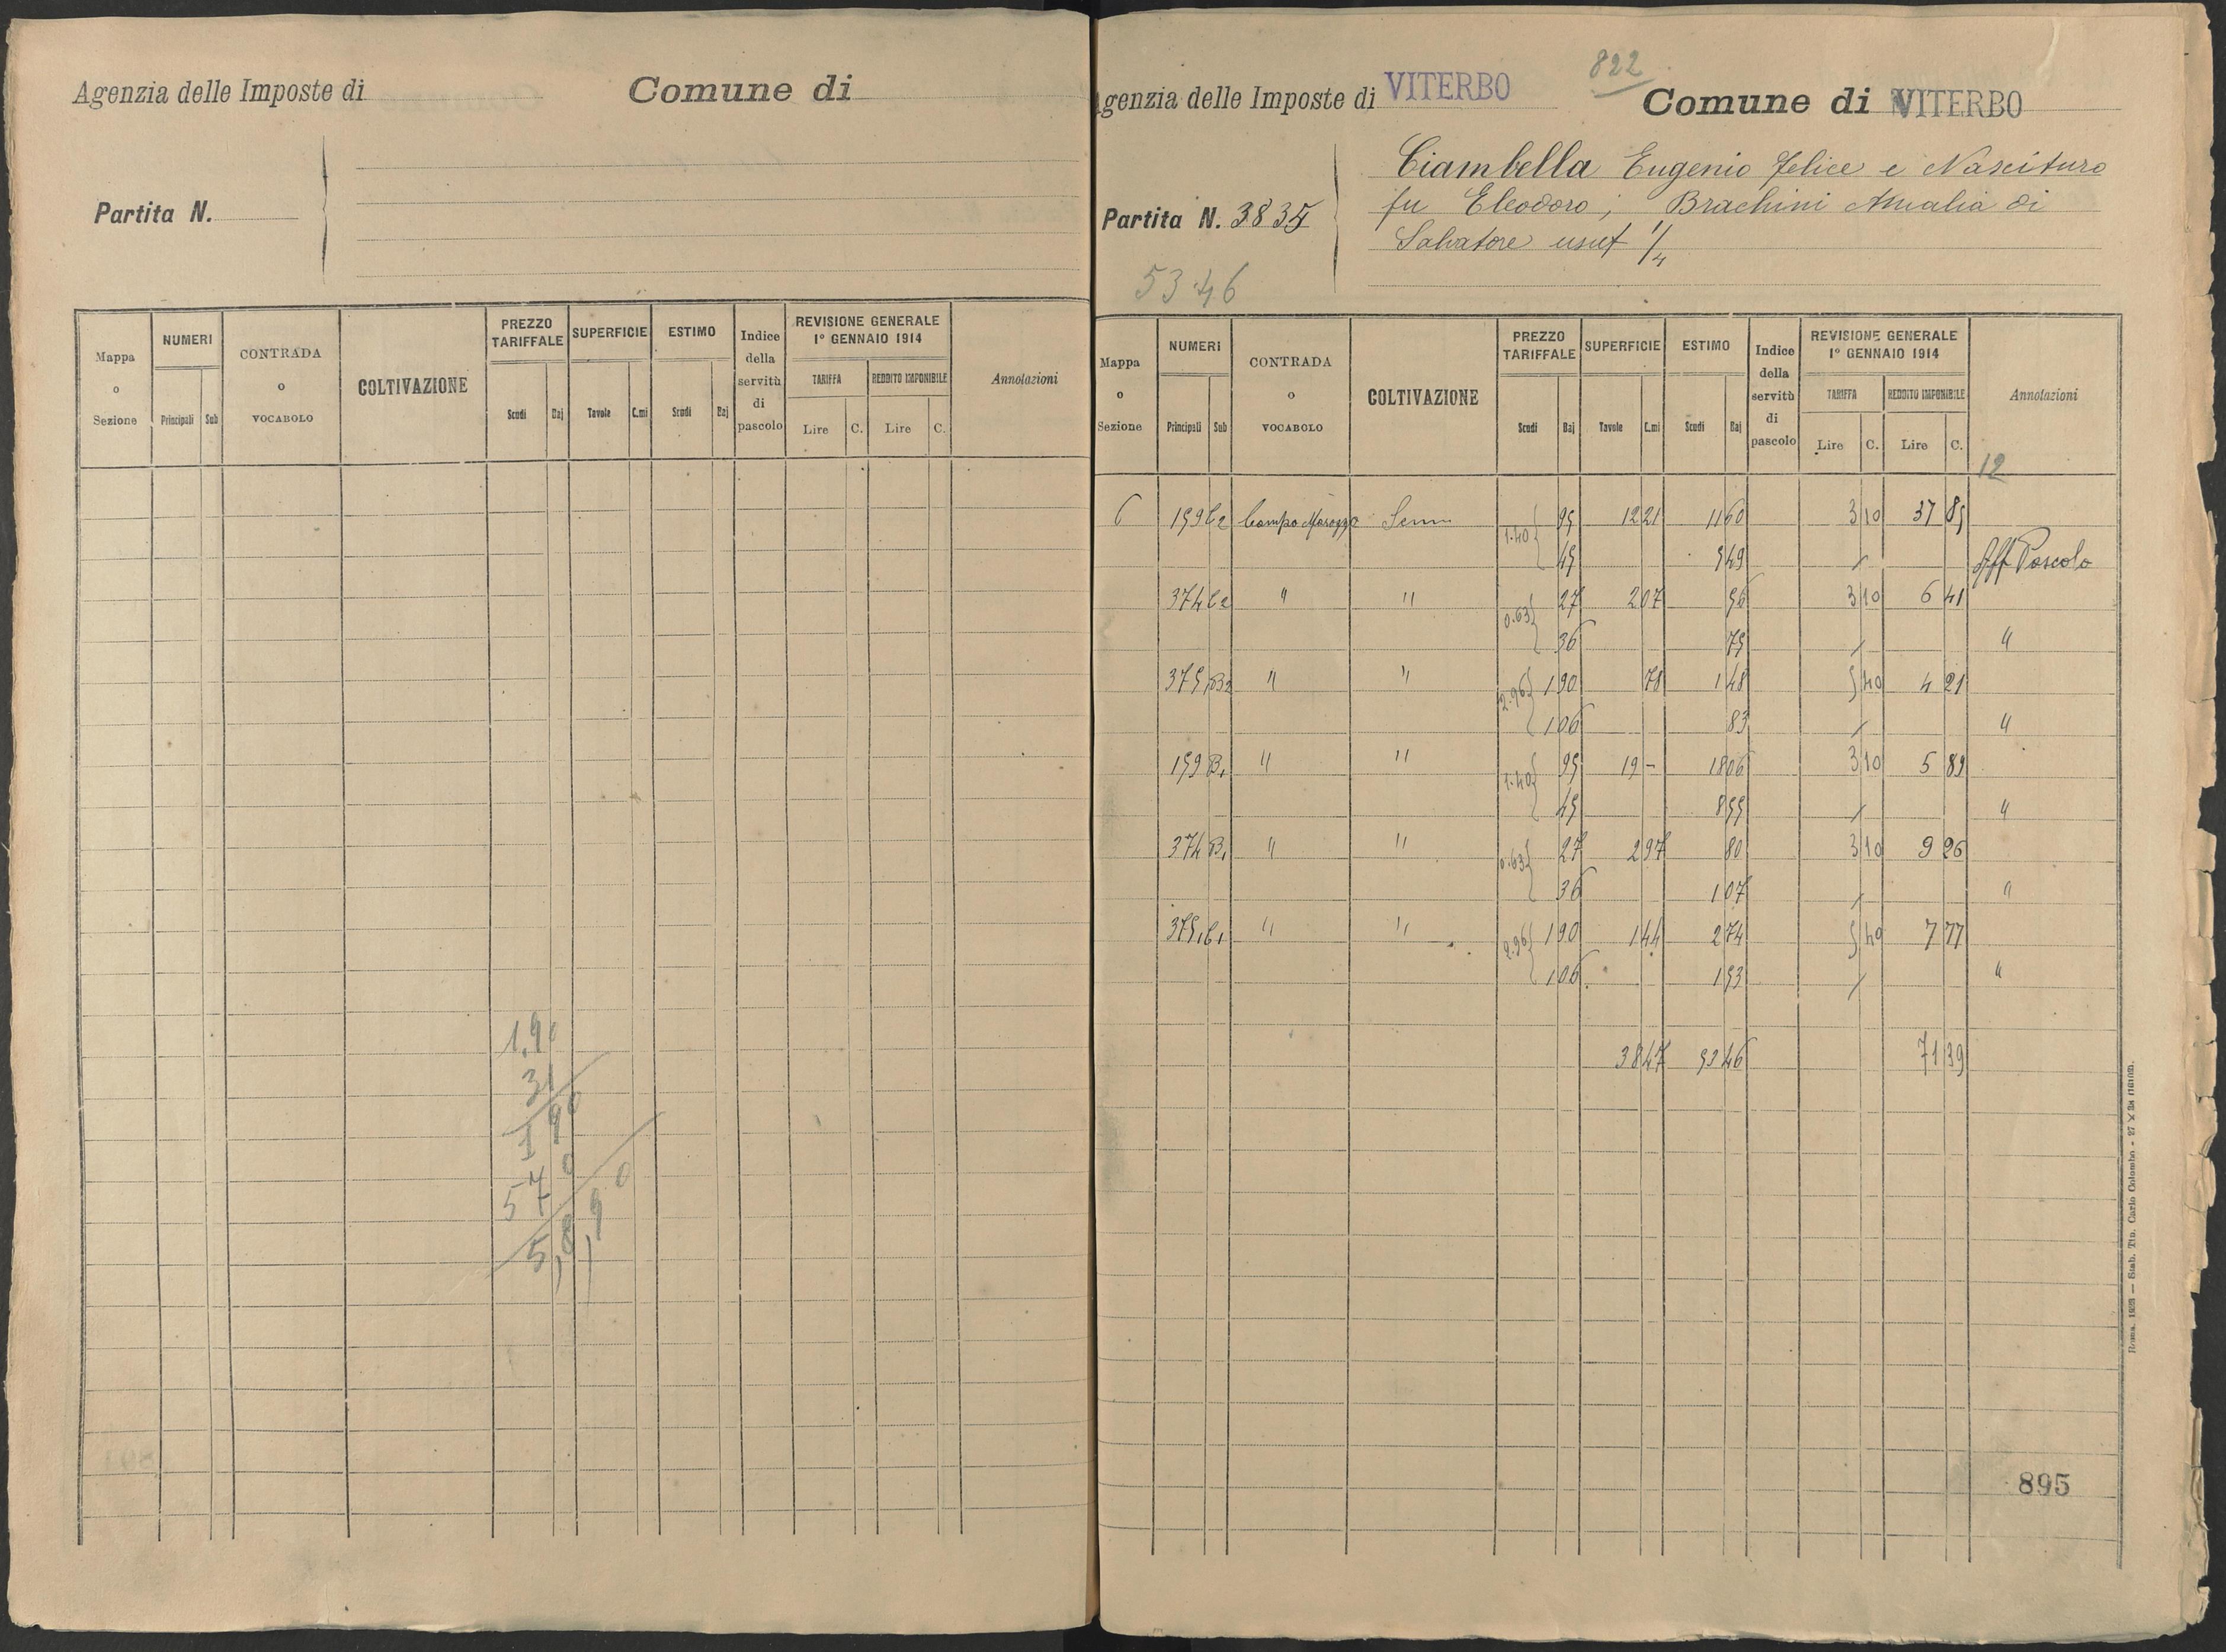 Agenzia delle Imposte di
Comune di
Partita N.
Mappa o Sezione
NUMERI
Principali Sub
CONTRADA o VOCABOLO
COLTIVAZIONE
PREZZO TARIFFALE
Scudi Baj
SUPERFICIE
Tavole C.mi
ESTIMO
Scudi Baj
Indice della servitù di pascolo
REVISIONE GENERALE
1° GENNAIO 1914
TARIFFA
Lire C.
REDDITO IMPONIBILE
Lire C.
Annotazioni
1.90
31
190
570
5,8,90
822
genzia delle Imposte di VITERBO
Comune di VITERBO
Partita N. 3835
5346
Ciambella Eugenio Felice e Nascituro
fu Eleodoro; Brachini Amalia di
Salvatore usuf 1/4
Mappa o Sezione
NUMERI
Principali Sub
CONTRADA o VOCABOLO
COLTIVAZIONE
PREZZO TARIFFALE
Scudi Baj
SUPERFICIE
Tavole C.mi
ESTIMO
Scudi Baj
Indice della servitù di pascolo
REVISIONE GENERALE
1° GENNAIO 1914
TARIFFA
Lire C.
REDDITO IMPONIBILE
Lire C.
Annotazioni
12
6 159 Campo Sem 1.40 95 12 21 11 60 3 10 37 85
45 5 49 Aff Pascolo
374 " " 0.63 27 2 07 56 3 10 6 41
36 75 "
375 B2 " " 2.96 1 90 78 1 48 5 40 4 21
1 06 83 "
159 B1 " " 1.40 95 19 - 18 06 3 10 5 89
45 8 55 "
374 B1 " " 0.63 27 2 97 80 3 10 9 26
36 1 07 "
375 " " 2.96 1 90 1 44 2 74 5 40 7 77
1 06 1 53 "
38 47 53 46 71 39
895
Roma, 1923 — Stab. Tip. Carlo Colombo